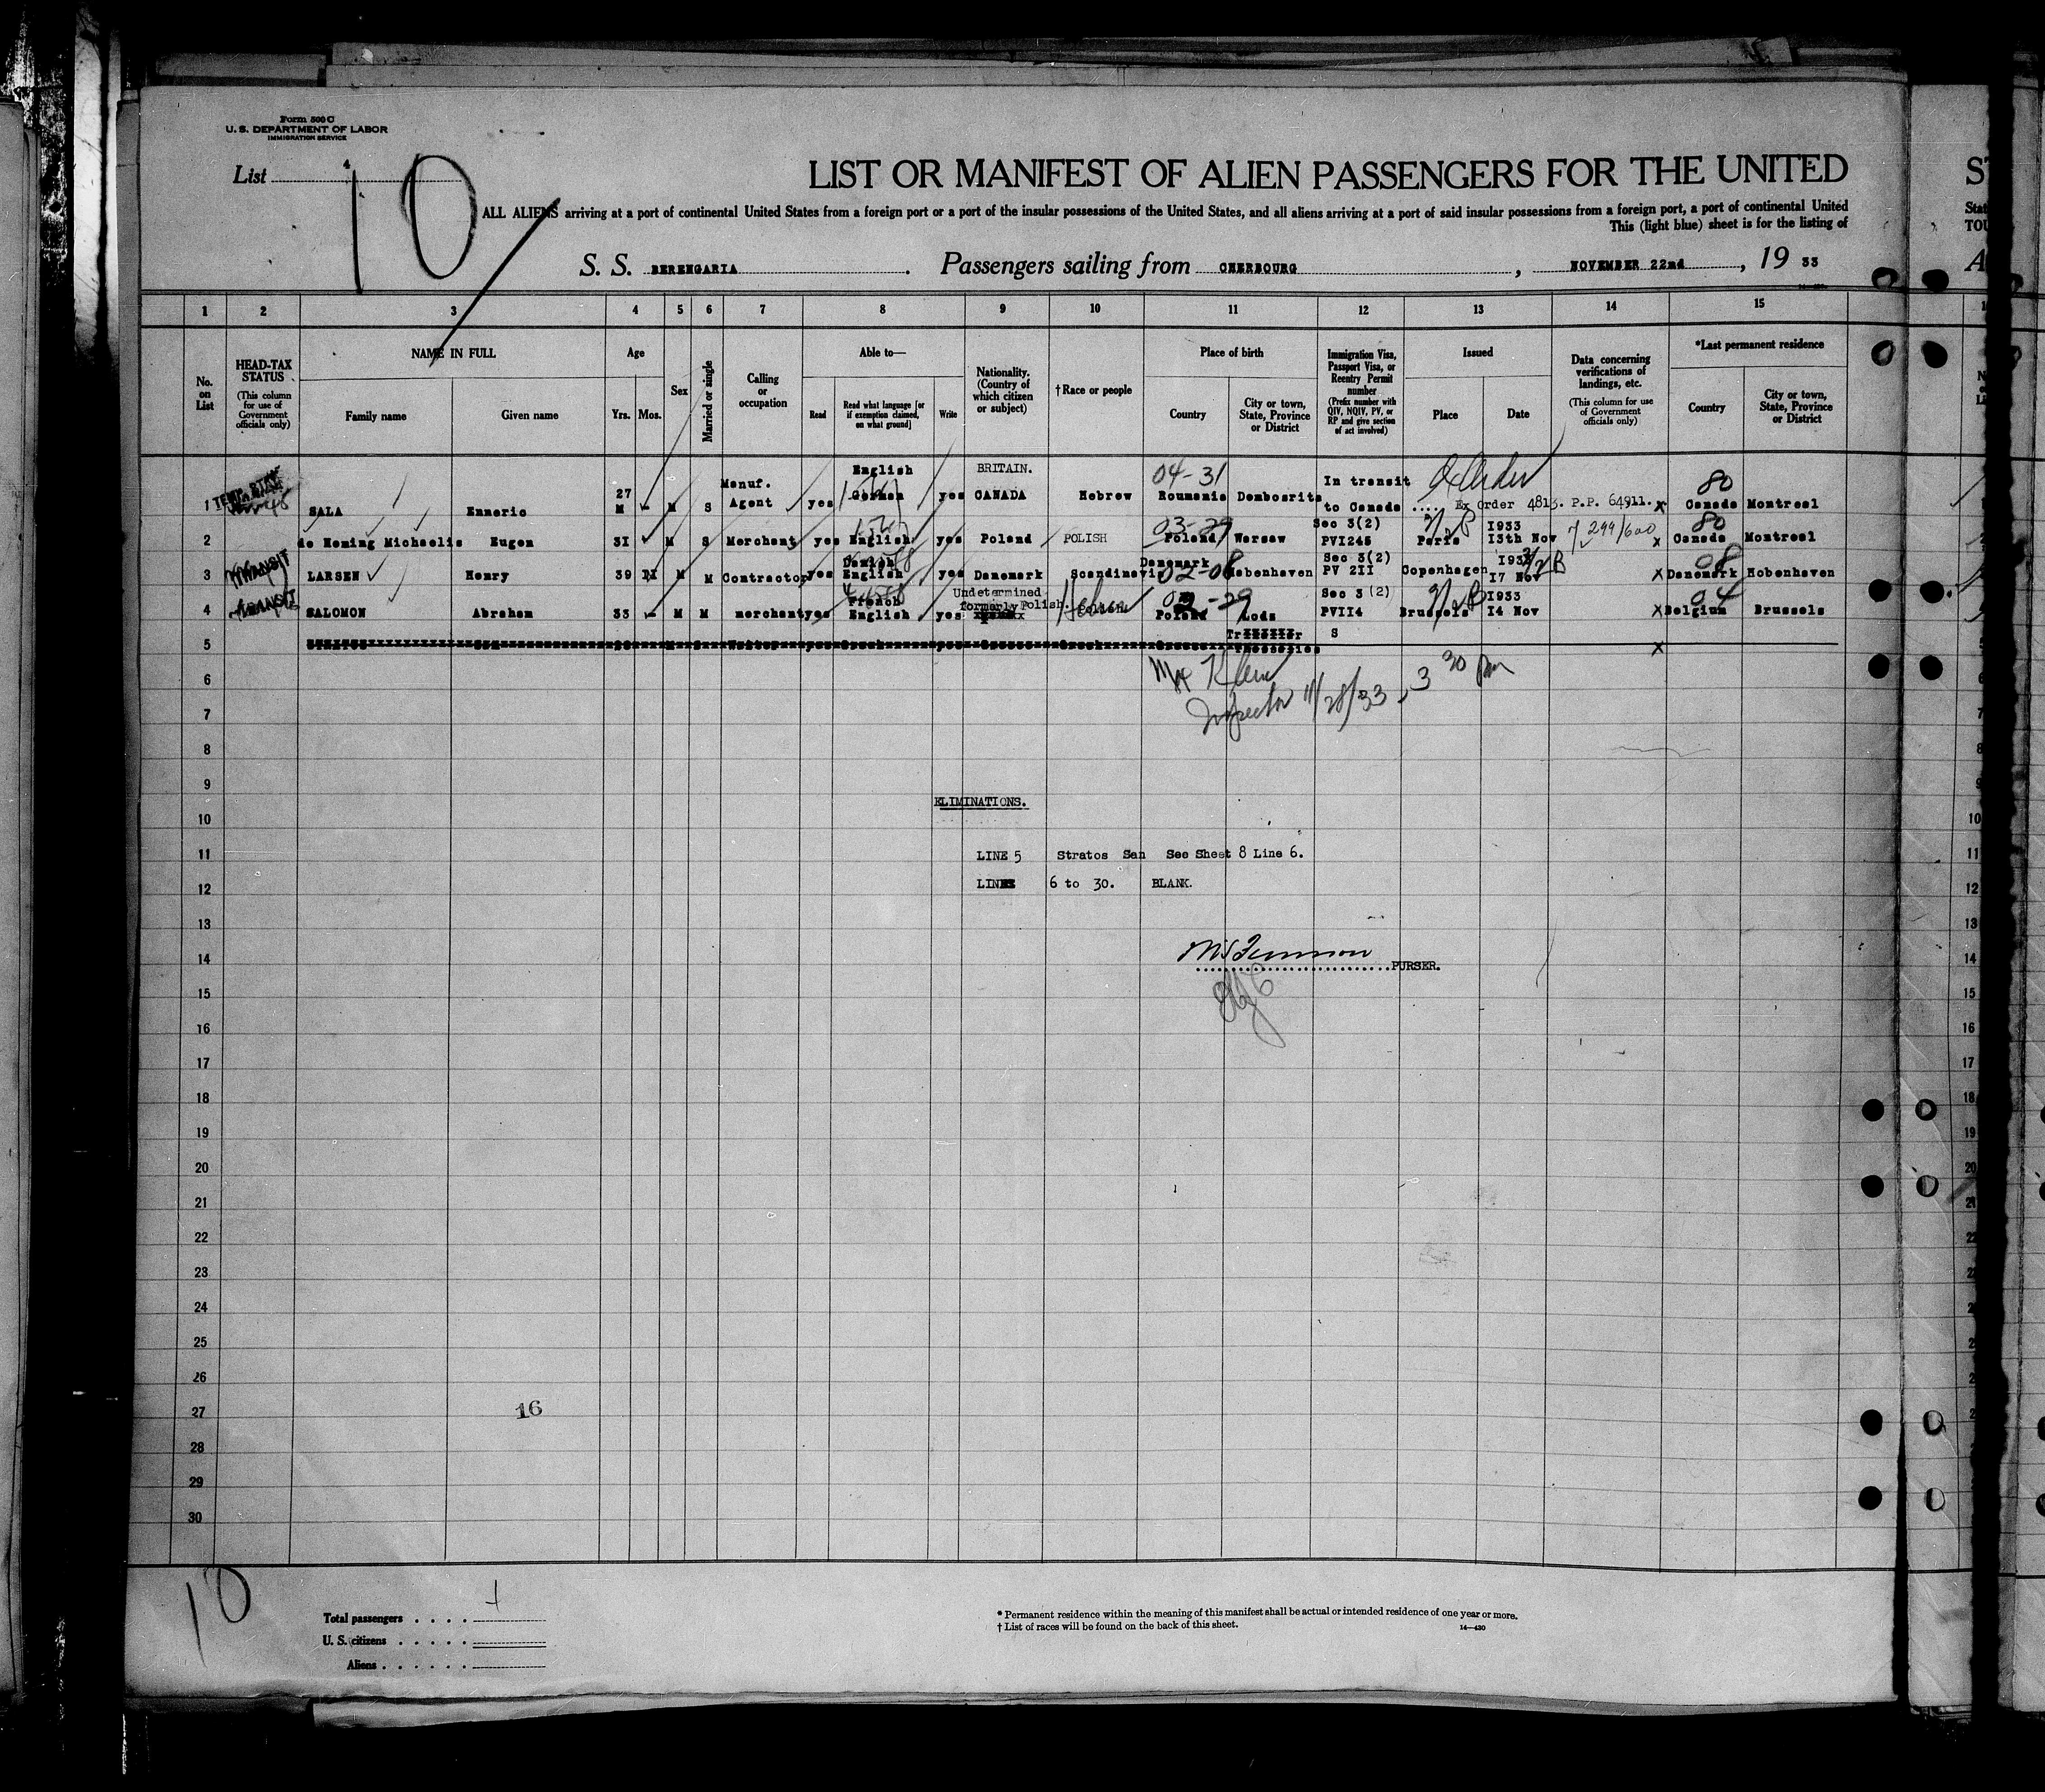 Form 500 C
U. S. DEPARTMENT OF LABOR
IMMIGRATION SERVICE
List 4
10
LIST OR MANIFEST OF ALIEN PASSENGERS FOR THE UNITED
ALL ALIENS arriving at a port of continental United States from a foreign port or a port of the insular possessions of the United States, and all aliens arriving at a port of said insular possessions from a foreign port, a port of continental United
This (light blue) sheet is for the listing of
S. S. BERENGARIA. Passengers sailing from CHERBOURG, NOVEMBER 22nd, 19 33
1 2 3 4 5 6 7 8 9 10 11 12 13 14 15
No. on List
HEAD-TAX STATUS (This column for use of Government officials only)
NAME IN FULL
Family name Given name
Age
Yrs. Mos.
Sex
Married or single
Calling or occupation
Able to—
Read Read what language [or if exemption claimed, on what ground] Write
Nationality. (Country of which citizen or subject)
†Race or people
Place of birth
Country City or town, State, Province or District
Immigration Visa, Passport Visa, or Reentry Permit number (Prefix number with QIV, NQIV, PV, or RP and give section of act involved)
Issued
Place Date
Data concerning verifications of landings, etc. (This column for use of Government officials only)
*Last permanent residence
Country City or town, State, Province or District
1 SALA Emmeric 27 M - M S Manuf. Agent yes English German yes BRITAIN. CANADA Hebrew 04-31 Roumania In transit to Canada .... Ex Order 4813. P.P. 64911. x 80 Canada Montreal
2 de Hening Michaelis Eugen 31 M S Merchant yes English yes Poland POLISH 03-29 Poland Warsaw Sec 3(2) PVI245 Paris 1933 13th Nov 299/600 x 80 Canada Montreal
3 TRANSIT LARSEN Henry 39 II M M Contractor yes Danish English yes Danemark Scandinavi Danemark 02-08 Kobenhaven Sec 3(2) PV 2II Copenhagen 1933 17 Nov x 08 Danemark Kobenhaven
4 TRANSIT SALOMON Abraham 33 - M M merchant yes French English yes Undetermined formerly Polish. Hebrew POLISH Poland Lodz Sec 3 (2) PVII4 Brussels 1933 14 Nov x 04 Belgium Brussels
5 STRATOS x
Inspector 11/28/33, 3 30 pm
6
7
8
9
ELIMINATIONS.
10
11 LINE 5 Stratos San See Sheet 8 Line 6.
12 LINES 6 to 30. BLANK.
13
14 PURSER.
15
16
17
18
19
20
21
22
23
24
25
26
27 16
28
29
30
10
Total passengers . . . .
U. S. citizens . . . . .
Aliens . . . . . .
* Permanent residence within the meaning of this manifest shall be actual or intended residence of one year or more.
† List of races will be found on the back of this sheet.
14—430